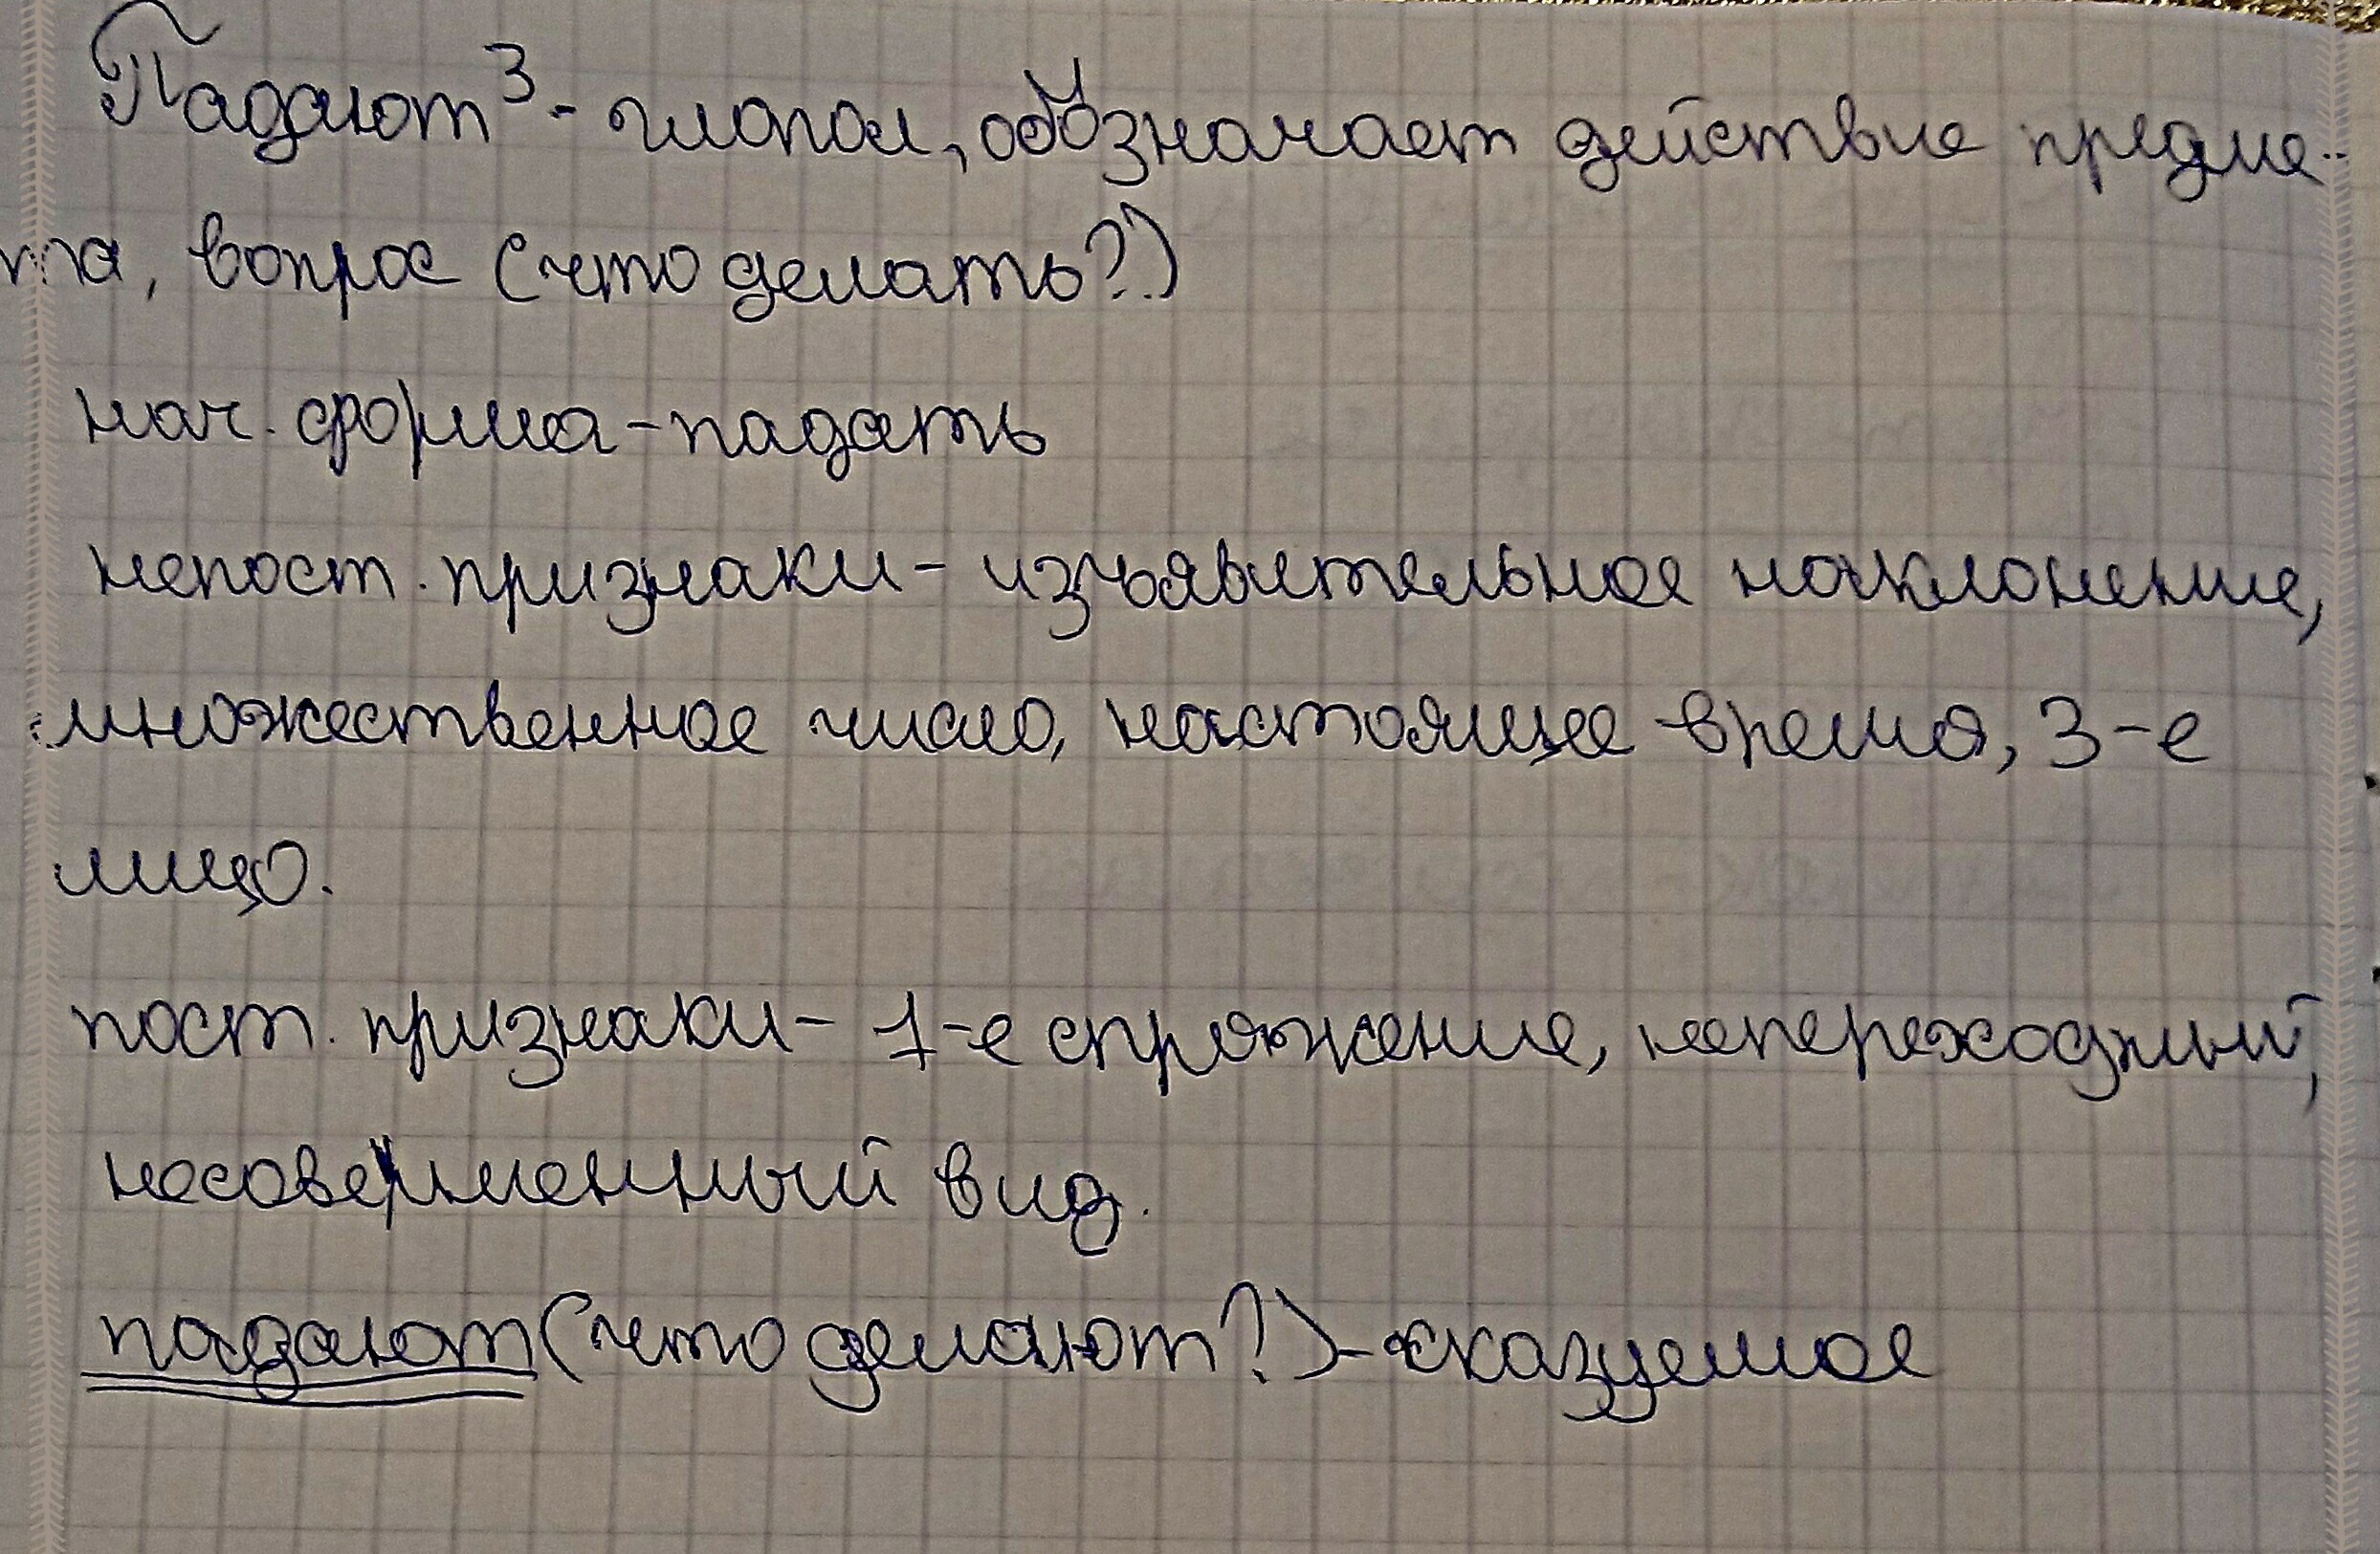 Падают³ - глагол, обозначает действие предме-
та, вопрос (что делать?)
нач. форма - падать
непост. признаки - изъявительное наклонение,
множественное число, настоящее время, 3-е
лицо.
пост. признаки - 1-е спряжение, непереходный,
несовершенный вид.
падают (что делают?) - сказуемое